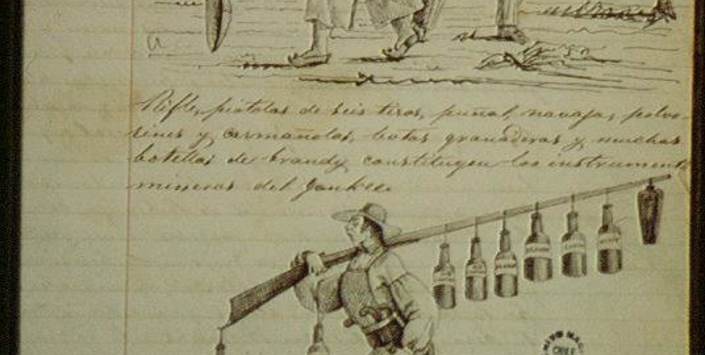 Rifle, pistolas de seis tiros, puñal, navajas, polvo-
rines y carmañolas, botas granaderas y muchas
botellas de brandy constituyen los instrument
mineros del Yankee.
CHILE